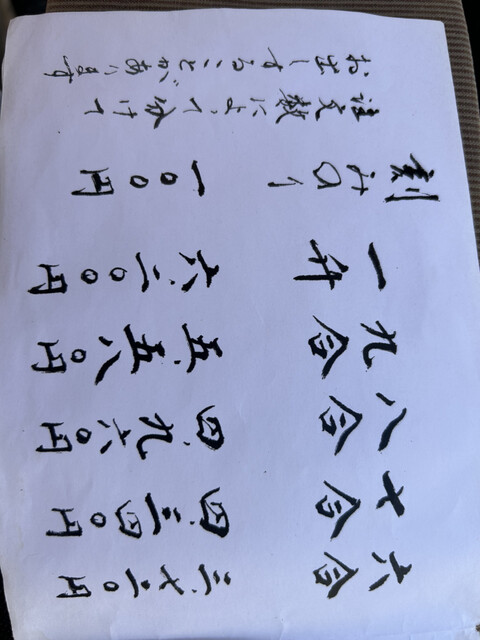 六合 三、七二〇円
七合 四、三四〇円
八合 四、九六〇円
九合 五、五八〇円
一升 六、二〇〇円
刻みのり 一〇〇円
注文数によって分けて
お出しすることがあります